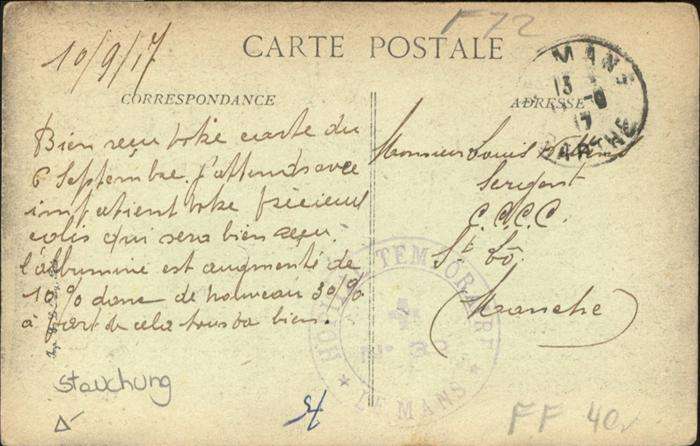 F72
10/9/17
CARTE POSTALE
CORRESPONDANCE
ADRESSE
MANS
13
17
SARTHE
Bien reçu votre carte du
6 Septembre. j'attends avec
impatient votre précieux
colis qui sera bien reçu.
l'albumine est augmenté de
10% donc de nouveau 30%
à part de cela tous va bien.
Monsieur Louis
Sergent
C.O.C.C.
St Lô
(Manche)
HOPITAL TEMPORAIRE
LE MANS
stauchung
FF 40